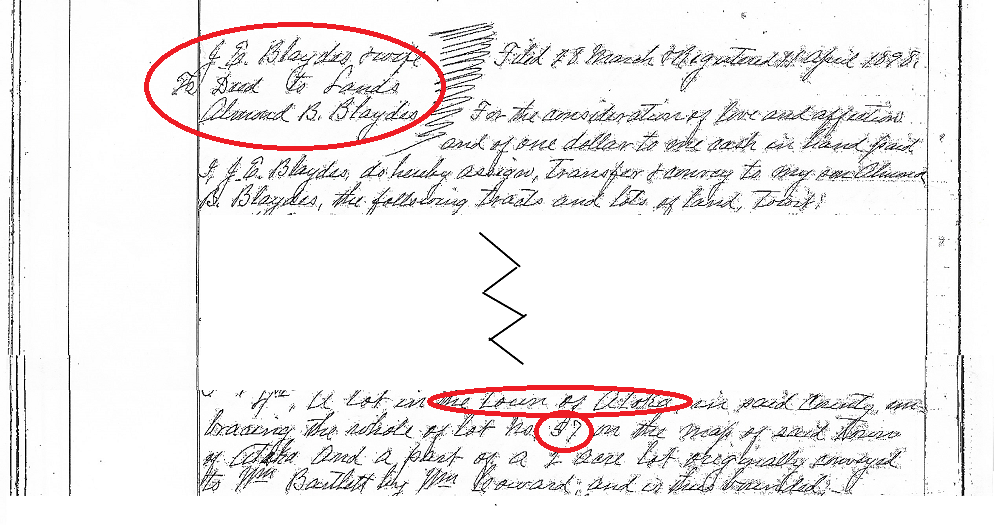 J. E. Blaydes & wife
To Deed to Lands
Almond B. Blaydes
Filed 28 March & Registered April 1898.
For the consideration of love and affection
and of one dollar to me cash in hand paid
I, J. E. Blaydes, do hereby assign, transfer & convey to my son Almond
B. Blaydes, the following tracts and lots of land, towit:
" " 4th, A lot in the town of Atoka, in said County, em-
bracing the whole of lot No. 37 on the map of said town
of Atoka and a part of a 2 acre lot originally conveyed
to Wm Bartlett by Wm Howard; and is thus bounded: